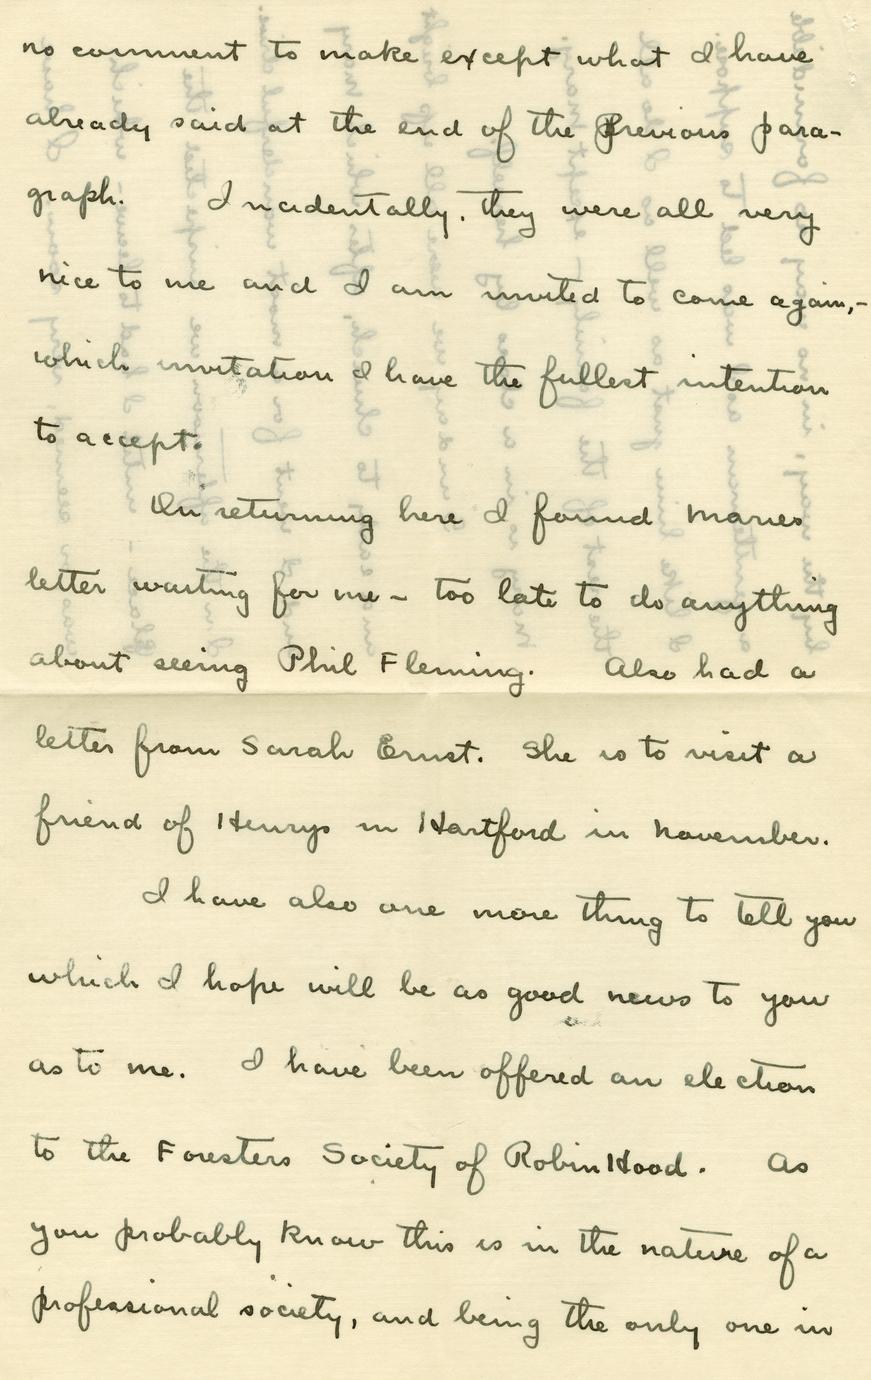 no comment to make except what I have
already said at the end of the Previous para-
graph. Incidentally, they were all very
nice to me and I am invited to come again,-
which invitation I have the fullest intention
to accept.
On returning here I found Maries
letter waiting for me - too late to do anything
about seeing Phil Fleming. Also had a
letter from Sarah Ernst. She is to visit a
friend of Henrys in Hartford in November.
I have also one more thing to tell you
which I hope will be as good news to you
as to me. I have been offered an election
to the Foresters Society of Robin Hood. As
you probably know this is in the nature of a
professional society, and being the only one in